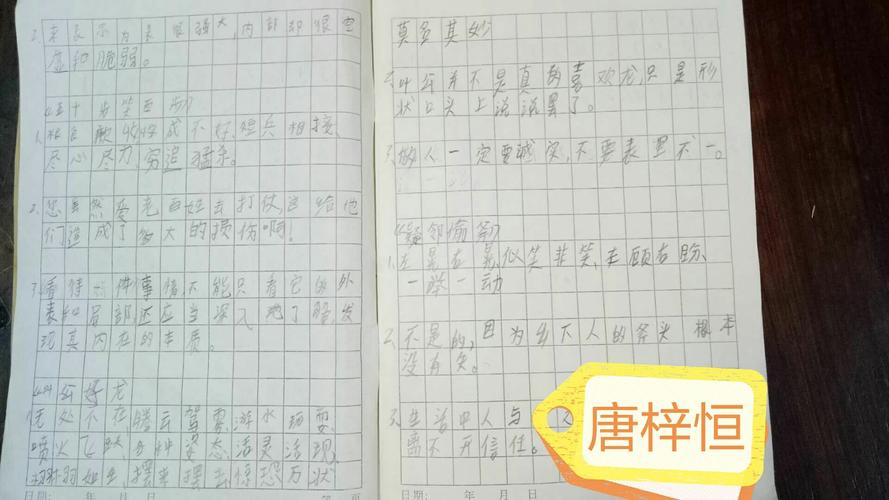 来表示为表很强大,内部却很空
虚和脆弱。
《五十步笑百步》
收成不好,短兵相接、
尽心尽力、穷追猛杀。
2、您虽然爱老百姓去打仗,这给他
们造成了多大的损伤啊!
3、看待一件事情,不能只看它的外
表和局部,还应当深入地了解,发
现其内在的本质。
《叶公好龙》
无处不在,腾云驾雾,游水玩耍、
喷火飞跃,各种姿态,活灵活现,
栩栩如生,摆来摆去,惊恐万状
日期: 年 月 日
莫名其妙
2、叶公并不是真的喜欢龙,只是形
状口头上说说罢了。
3、做人一定要诚实,不要表里不一。
《疑邻偷斧》
1、左晃右晃,似笑非笑,左顾右盼、
一举一动
2、不是的,因为乡下人的斧头根本
没有失。
3、生活中人与人
离不开信任。
日期: 年 月 日
唐梓恒